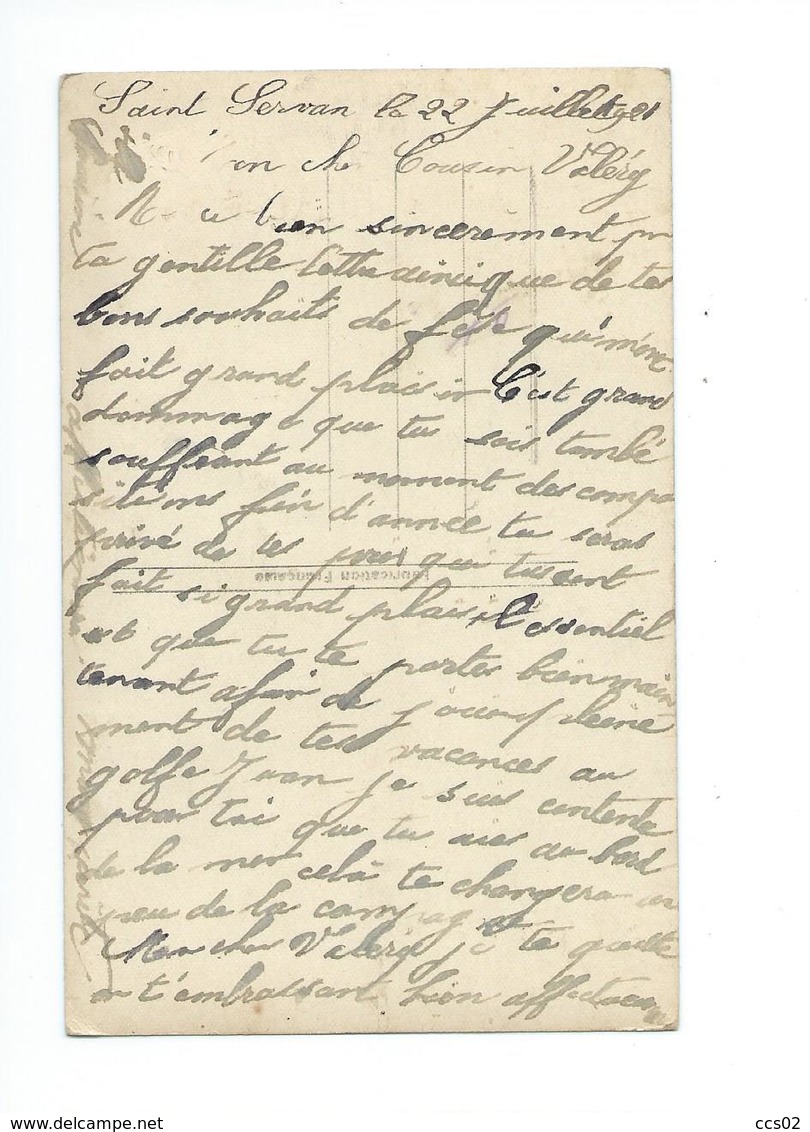 Saint Servan le 22 Juillet 1921
mon cher Cousin Valéry
bien sincèrement pr
ta gentille lettre ainci que de tes
bons souhaits de fête qui m'ont
fait grand plaisir C'est grand
dommage que tu sois tombé
souffrant au moment des compo
sitions fin d'année tu seras
privé de tes prix qui t'eusent
Fabrication Française
fait si grand plaisir l'essentiel
est que tu te portes bien main
tenant afin de jouir pleine
ment de tes vacances au
golfe Juan je suis contente
pour toi que tu aies au bord
de la mer celà te changera un
peu de la campagne
Mon cher Valéry je te quitte
en t'embrassant bien affectueuse
ccs02